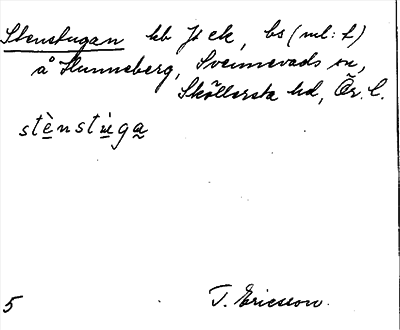 Stenstugan kb J8 ck, bs (ml: t)
å Hunneberg, Svennevads sn,
Sköllersta hd, Ör. l.
stènstùga
5 T. Ericsson.